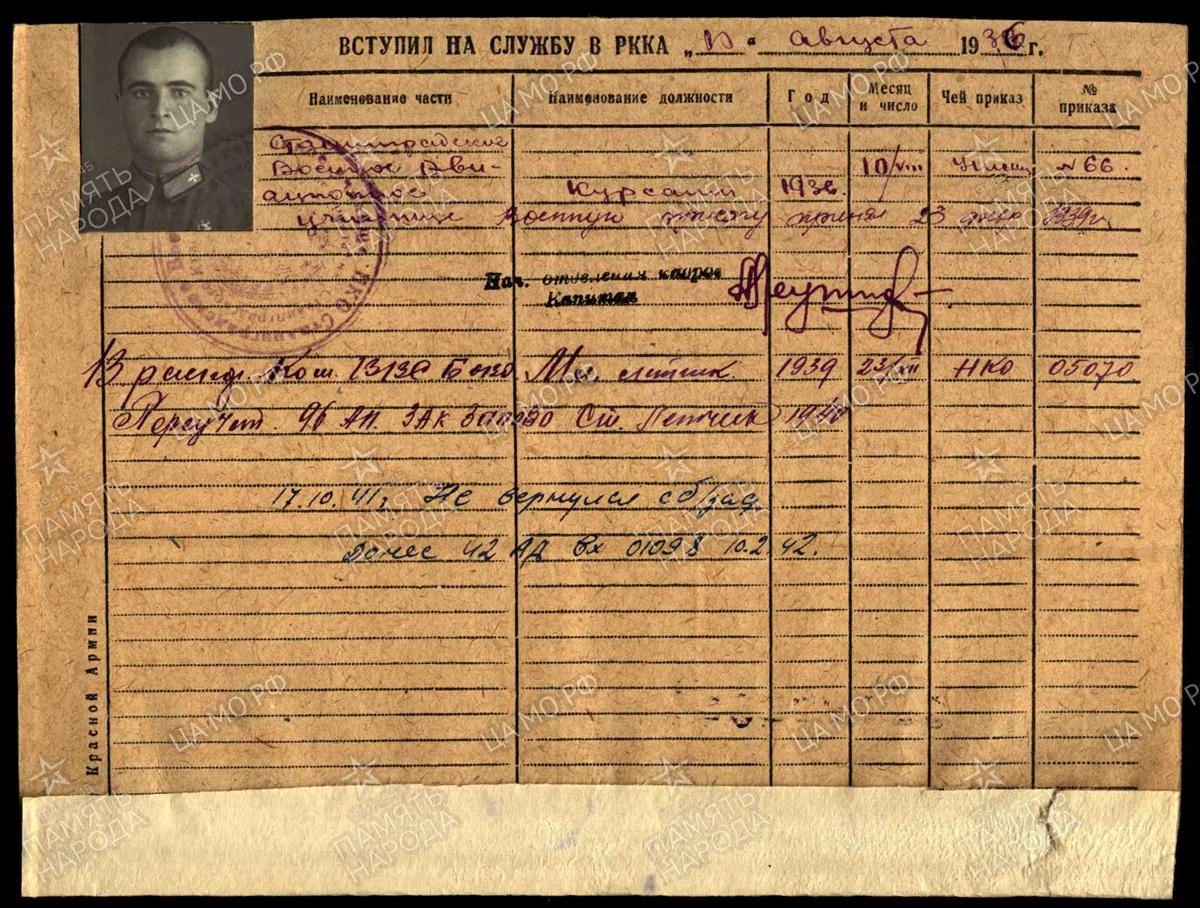 ВСТУПИЛ НА СЛУЖБУ В РККА „10“ августа 1936 г.
Наименование части Наименование должности Год Месяц и число Чей приказ № приказа
Сталинградское
Военное Ави-
ационное Курсант 1936. 10/VIII Училищ N 66.
училище Военную присягу принял 23 февр 1939 г.
Нач. отделения кадров
Капитан
В распор. Ком. ВВС БОВО Мл. летчик. 1939 23/XII НКО 05070
Переучет. 96 АП. ЗАК ЗапОВО Ст. Летчик 1940
17.10.41г. Не вернулся с б/зад
Донес 42 АД Вх 01098 10.2.42.
Красной Армии
ЦАМО РФ
ПАМЯТЬ НАРОДА